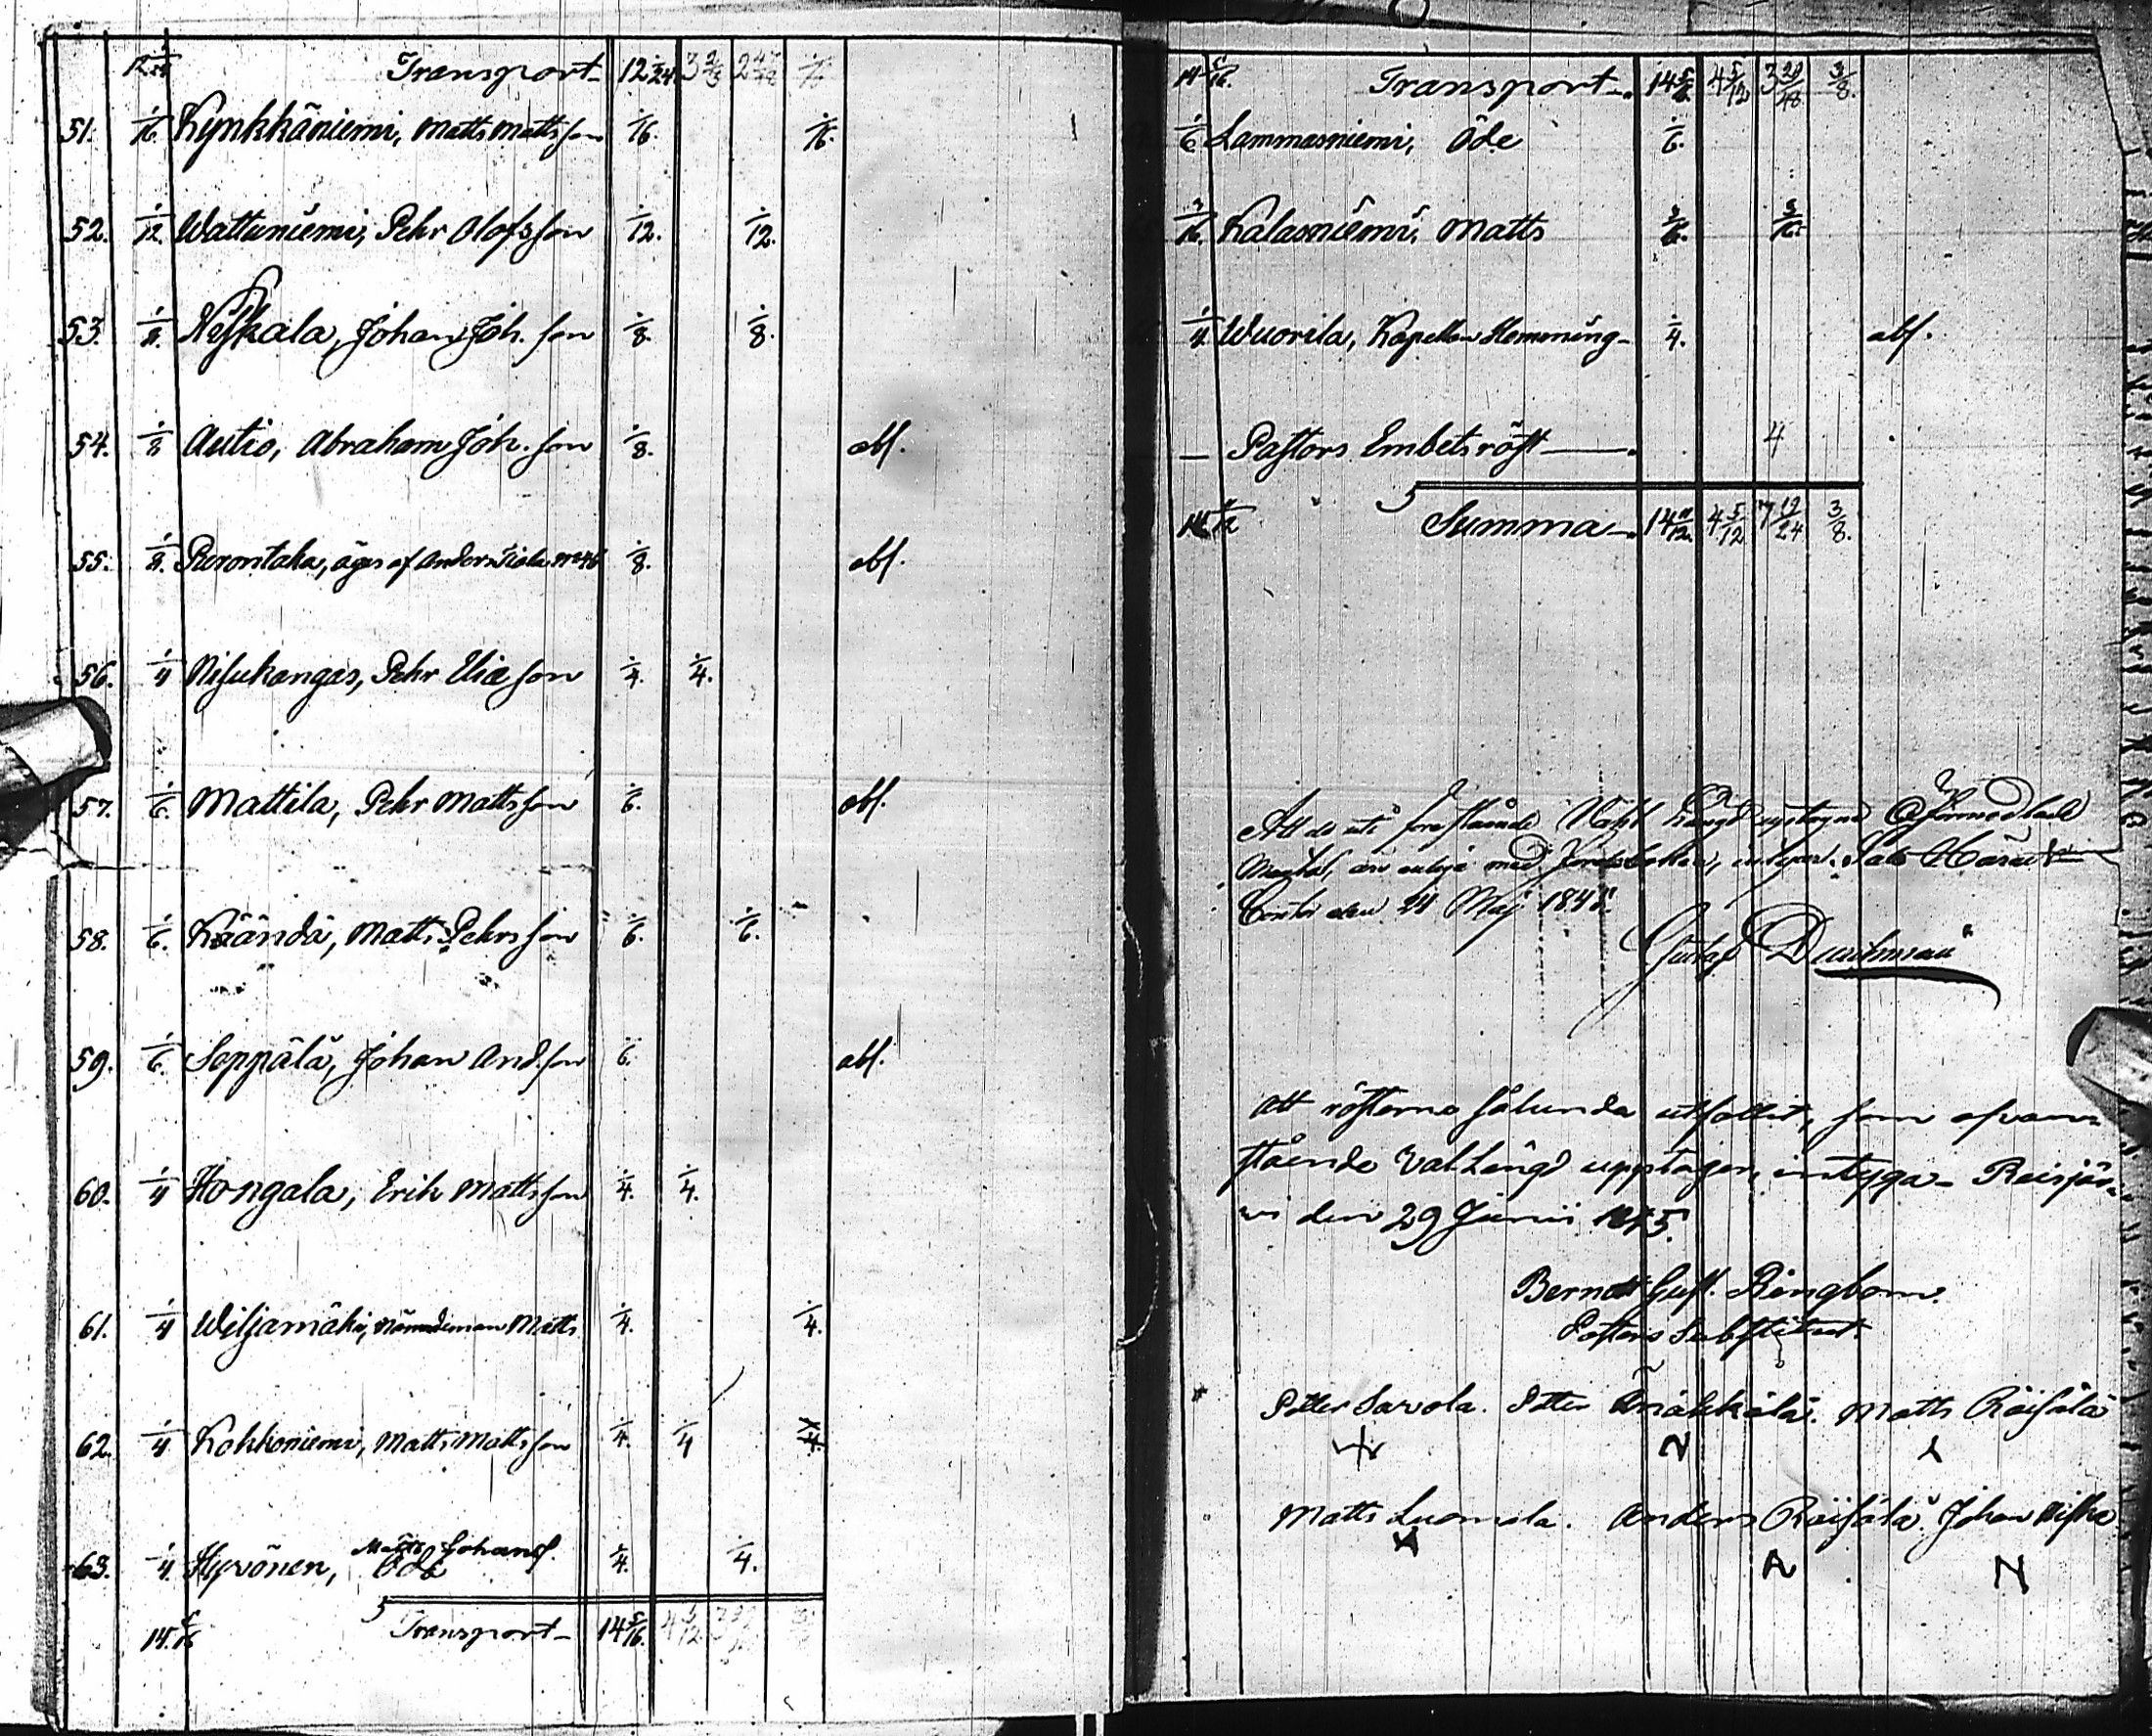 Transport 12 1/24 3 2/3
51. 1/16. Kynkkäniemi, Matts Mattsson 1/16. 1/16.
52. 1/12. Wattuniemi, Pehr Olofsson 1/12. 1/12.
53. 1/8. Niskala, Johan Joh. son 1/8. 1/8.
54. 1/8 Autio, Abraham Joh. son 1/8. abs.
55. 1/8. äges af Anders Tiala No 46 1/8. abs.
56. 1/4 Nisukangas, Pehr Elia son 1/4. 1/4.
57. 1/6. Mattila, Pehr Mattsson 1/6. abs.
58. 1/6. Käändä, Matts Pehrsson 1/6. 1/6.
59. 1/6. Seppälä, Johan And. son 1/6. abs.
60. 1/4 Hongala, Erik Mattsson 1/4. 1/4.
61. 1/4 Wiljamäki, Nämndeman Matts 1/4. 1/4.
62. 1/4 Kokkoniemi, Matts Mattsson 1/4. 1/4 1/4.
Matts Johans.
63. 1/4. Hyvönen, Öde 1/4. 1/4.
14 5/16 Transport 14 5/16.
14 5/16. Transport 14 5/16. 4 5/12 3 29/48 3/8.
1/6 Lammasniemi, Öde 1/6.
3/16. Kalaoniemi, Matts 3/16. 3/16.
1/4 Wuorila, Kapellan Hemming 1/4. abs.
— Pastors Embetsröst 4
Summa 14 11/12. 4 5/12 7 19/24 3/8.
Att de uti förestående Wahl Längd upptagne Oförmedlade
Mantal, äro enlige med Jordeboken, intygar. Salo Härads
Contor den 24 Maj 1845.
Gustaf
Att rösterne sålunda utfallit, som ofvan-
stående Vallängd upptager, intyga Reisjär-
vi den 29 Junii 1845.
Berndt Gust. Ringbom.
Pastors Substitut.
Petter Savola. Petter Matts Räisälä
Matts Luomala. Anders Räisälä Johan Niska